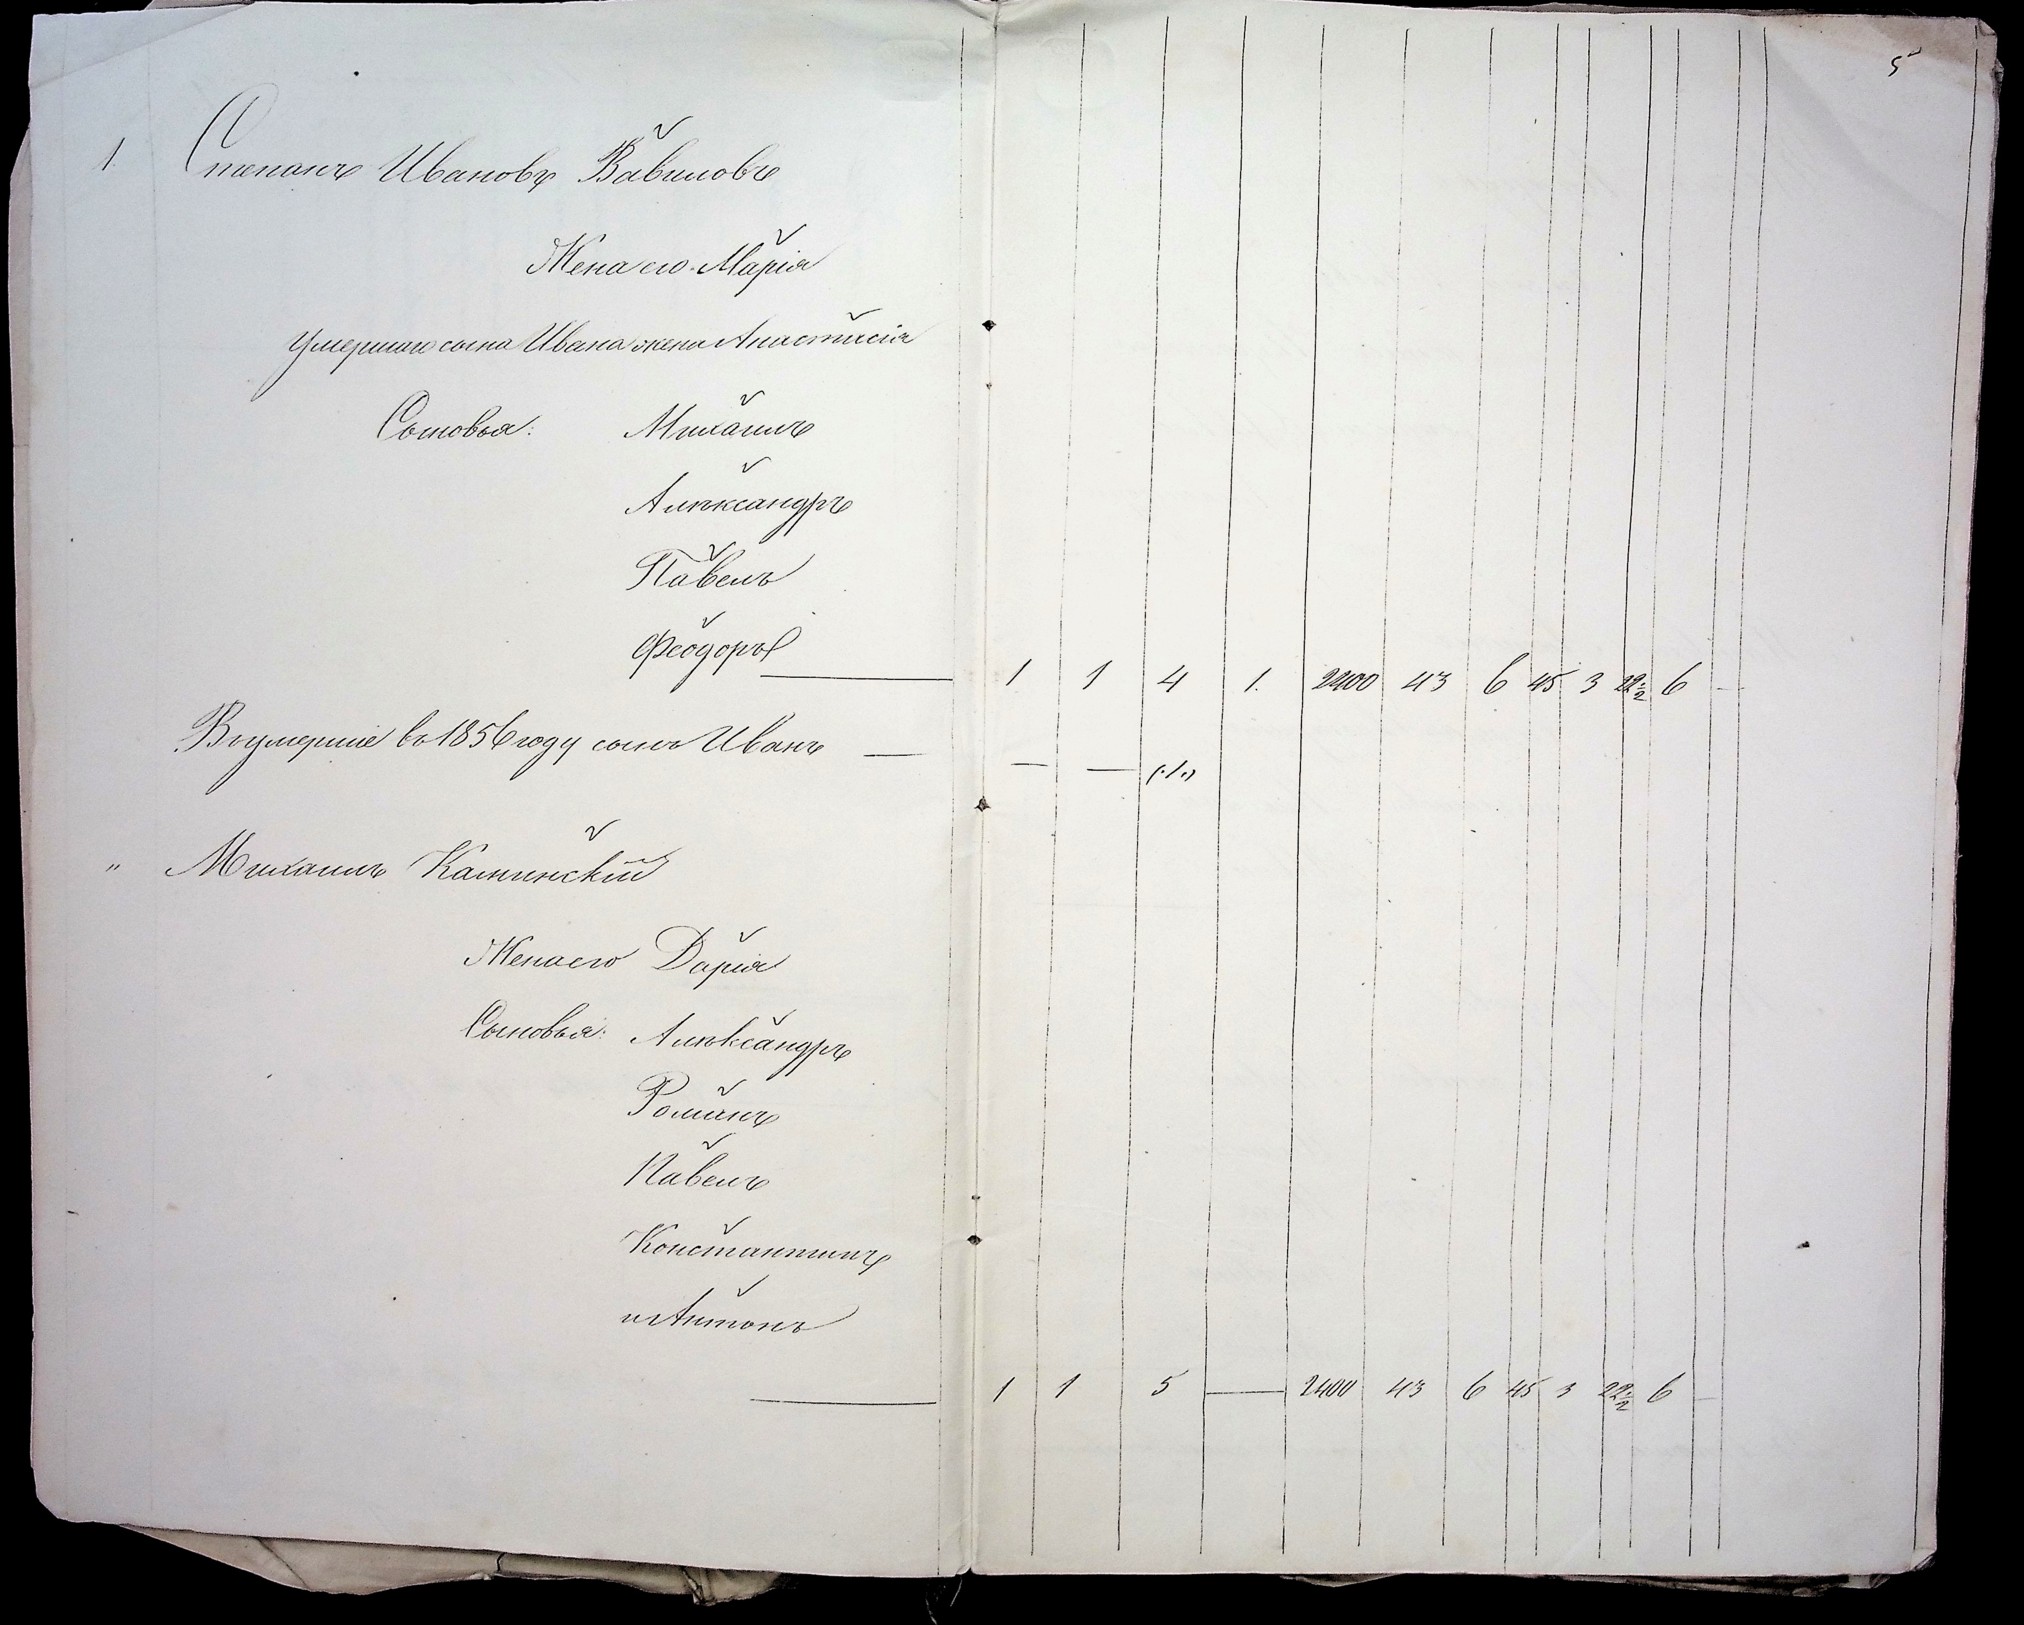 5
1. Степанъ Ивановъ Вавиловъ
Жена его Марія
Умершаго сына Ивана жена Анастасія
Сыновья: Михаилъ
Алѣксандръ
Павелъ
Ѳеодоръ
1 1 4 1. 2400 43 6 45 3 22½ 6 —
Въ умершіе въ 1856 году сынъ Иванъ —
— — (1)
" Михаилъ Каминскій
Жена его Дарія
Сыновья: Алѣксандръ
Романъ
Павелъ
Константинъ
и Антонъ
1 1 5 — 2400 43 6 45 3 22½ 6 —